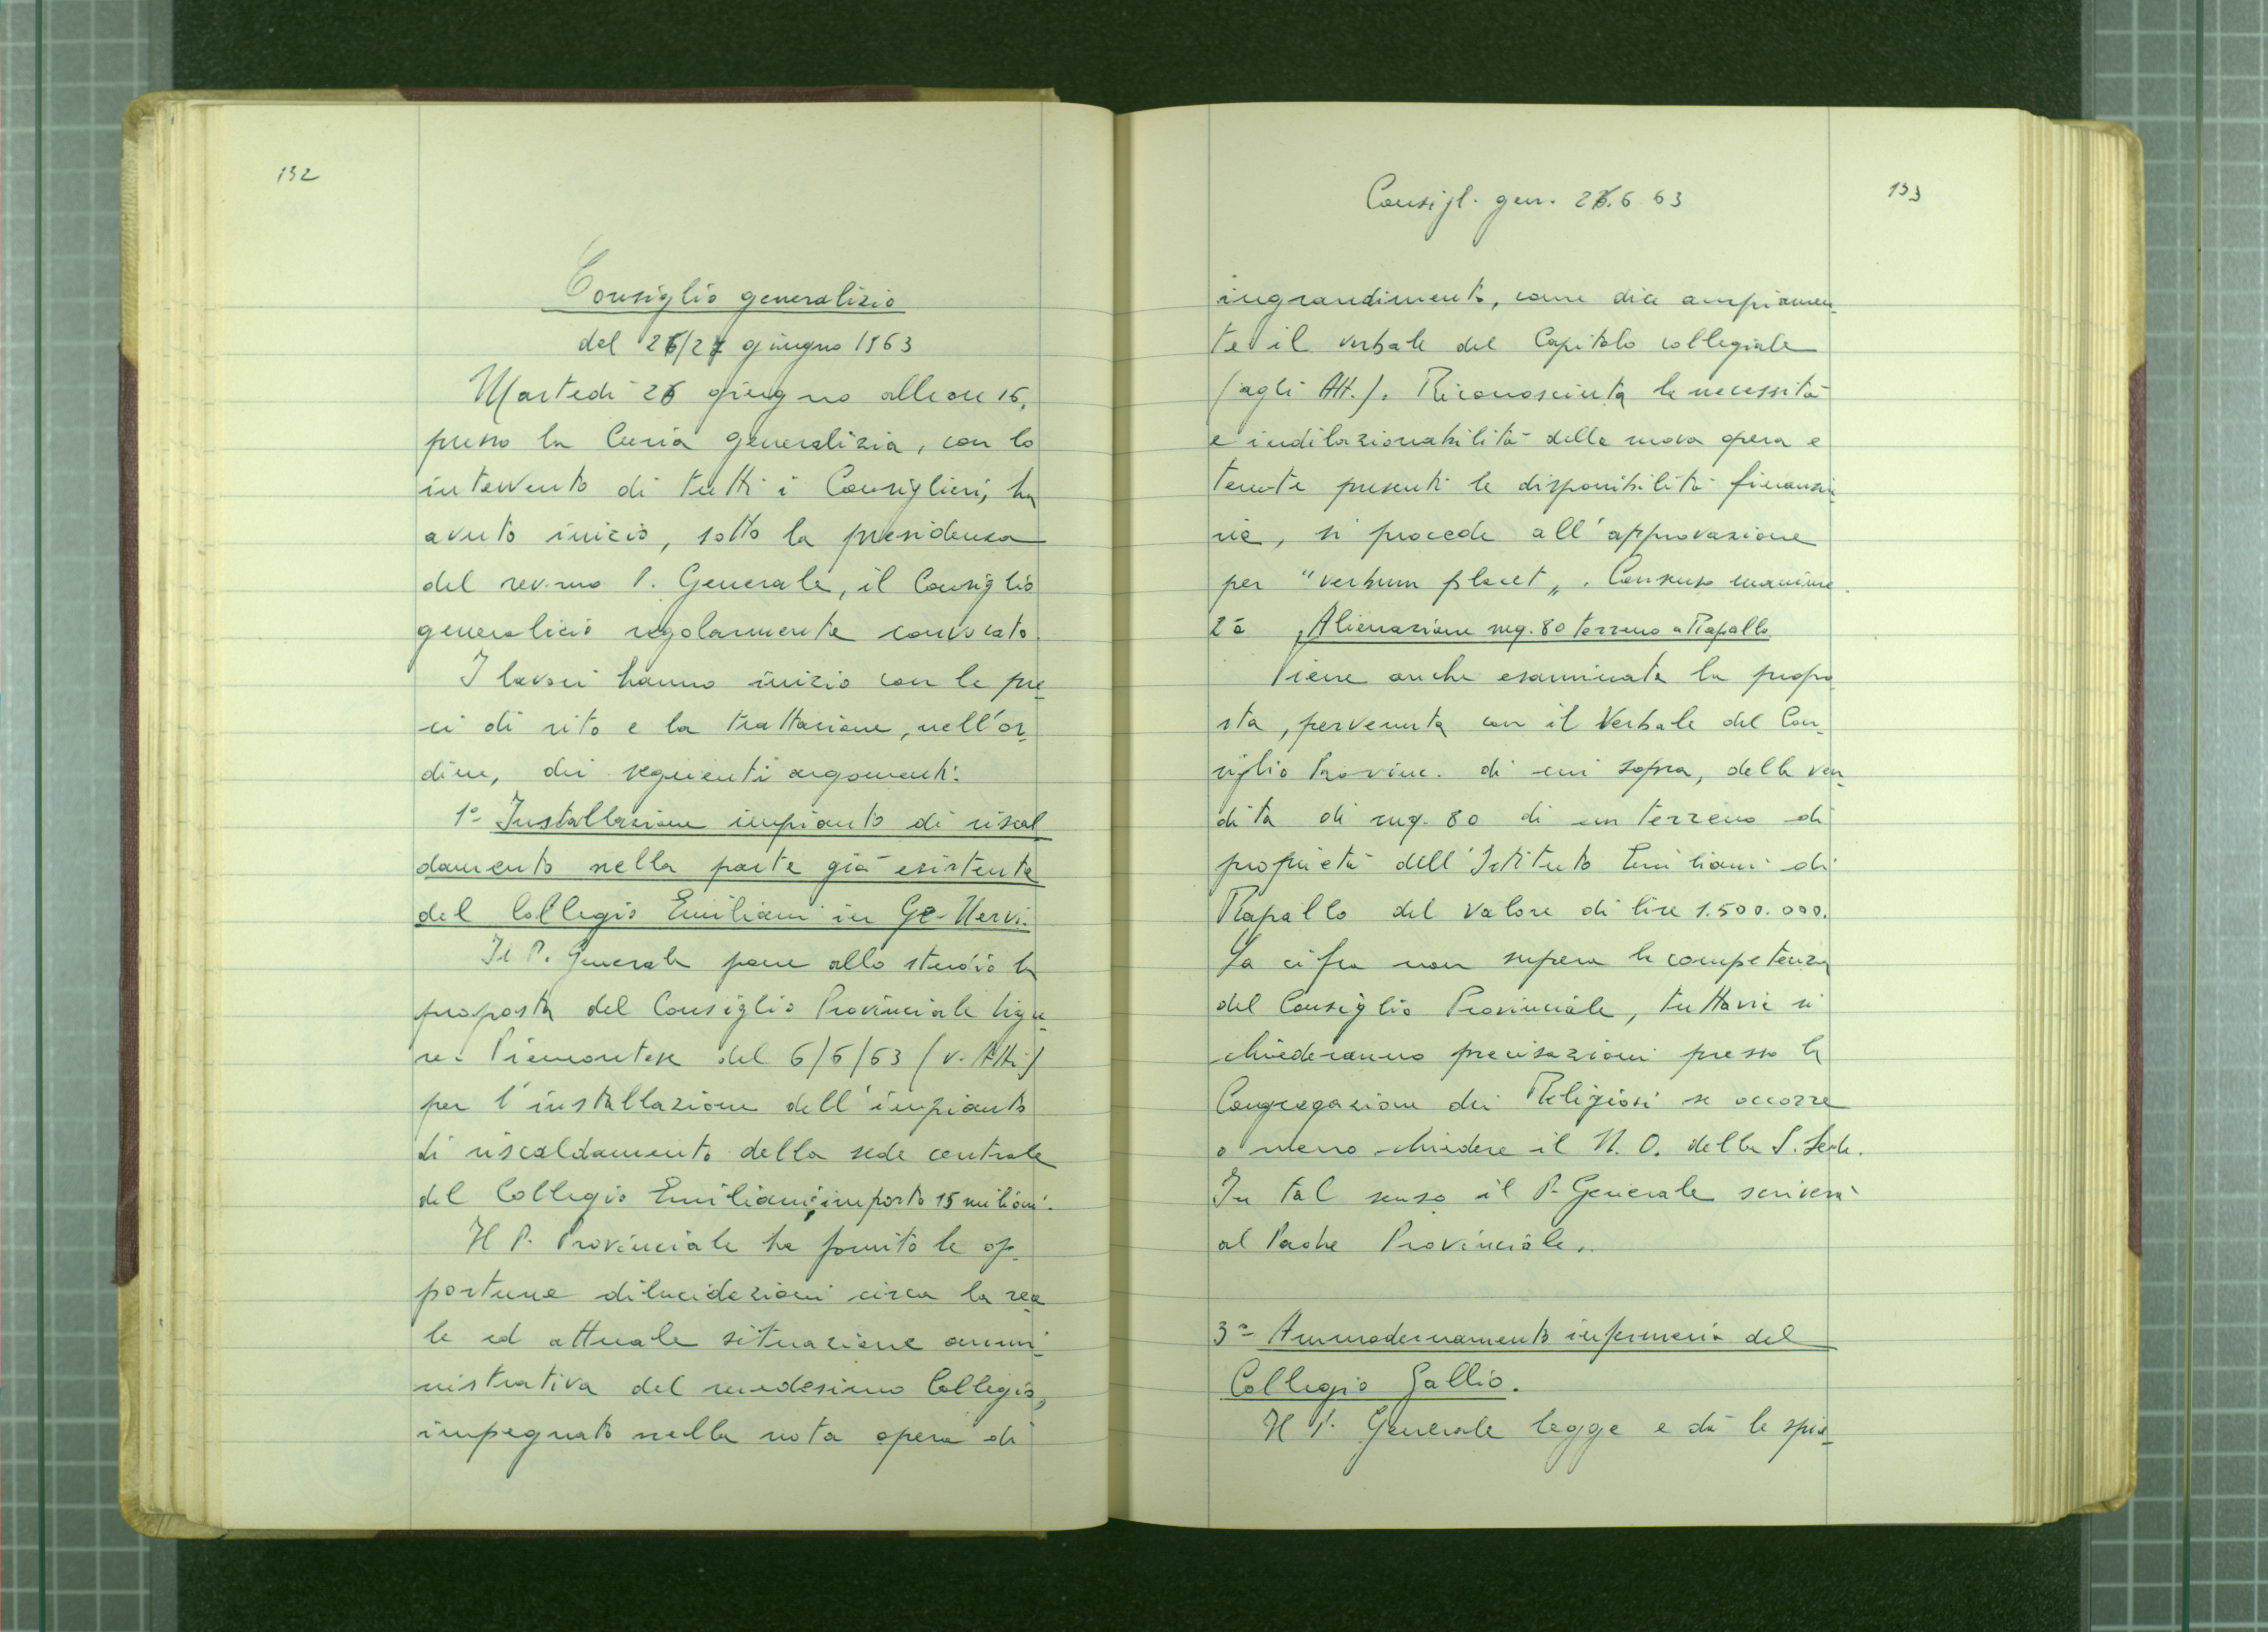 132
Consiglio generalizio
del 26/27 giugno 1963
Martedì 26 giugno alle ore 16,
presso la Curia generalizia, con lo
intervento di tutti i Consiglieri, ha
avuto inizio, sotto la presidenza
del rev.mo P. Generale, il Consiglio
generalicio regolarmente convocato.
I lavori hanno inizio con le pre-
ci di rito e la trattazione, nell'or-
dine, dei seguenti argomenti:
1º Installazione impianto di riscal
damento nella parte già esistente
del Collegio Emiliani in Ge-Nervi.
Il P. Generale pone allo studio la
proposta del Consiglio Provinciale ligu-
re-Piemontese del 6/6/63 (v. Atti)
per l'installazione dell'impianto
di riscaldamento della sede centrale
del Collegio Emiliani; importo 15 milioni.
Il P. Provinciale ha fornito le op-
portune dilucidazioni circa la rea-
le ed attuale situazione ammi-
nistrativa del medesimo Collegio,
impegnato nella nota opera di
Consigl. gen. 26.6 63
133
ingrandimento, come dice ampiamen-
te il verbale del Capitolo collegiale
(agli Att.). Riconosciuta la necessità
e indilazionabilità della nuova opera e
tenute presenti le disponibilità finanzia
rie, si procede all'approvazione
per "verbum placet". Consenso unanime.
2º Alienazione mq. 80 terreno a Rapallo
Viene anche esaminata la propo-
sta, pervenuta con il Verbale del Con-
siglio Provinc. di cui sopra, della ven-
dita di mq. 80 di un terreno di
proprietà dell'Istituto Emiliani di
Rapallo del valore di lire 1.500.000.
La cifra non supera la competenza
del Consiglio Provinciale, tuttavia si
chiederanno precisazioni presso la
Congregazione dei Religiosi se occorre
o meno chiedere il N. O. della S. Sede.
In tal senso il P. Generale scriverà
al Padre Provinciale.
3º Ammodernamento infermeria del
Collegio Gallio.
Il P. Generale legge e dà le spie-